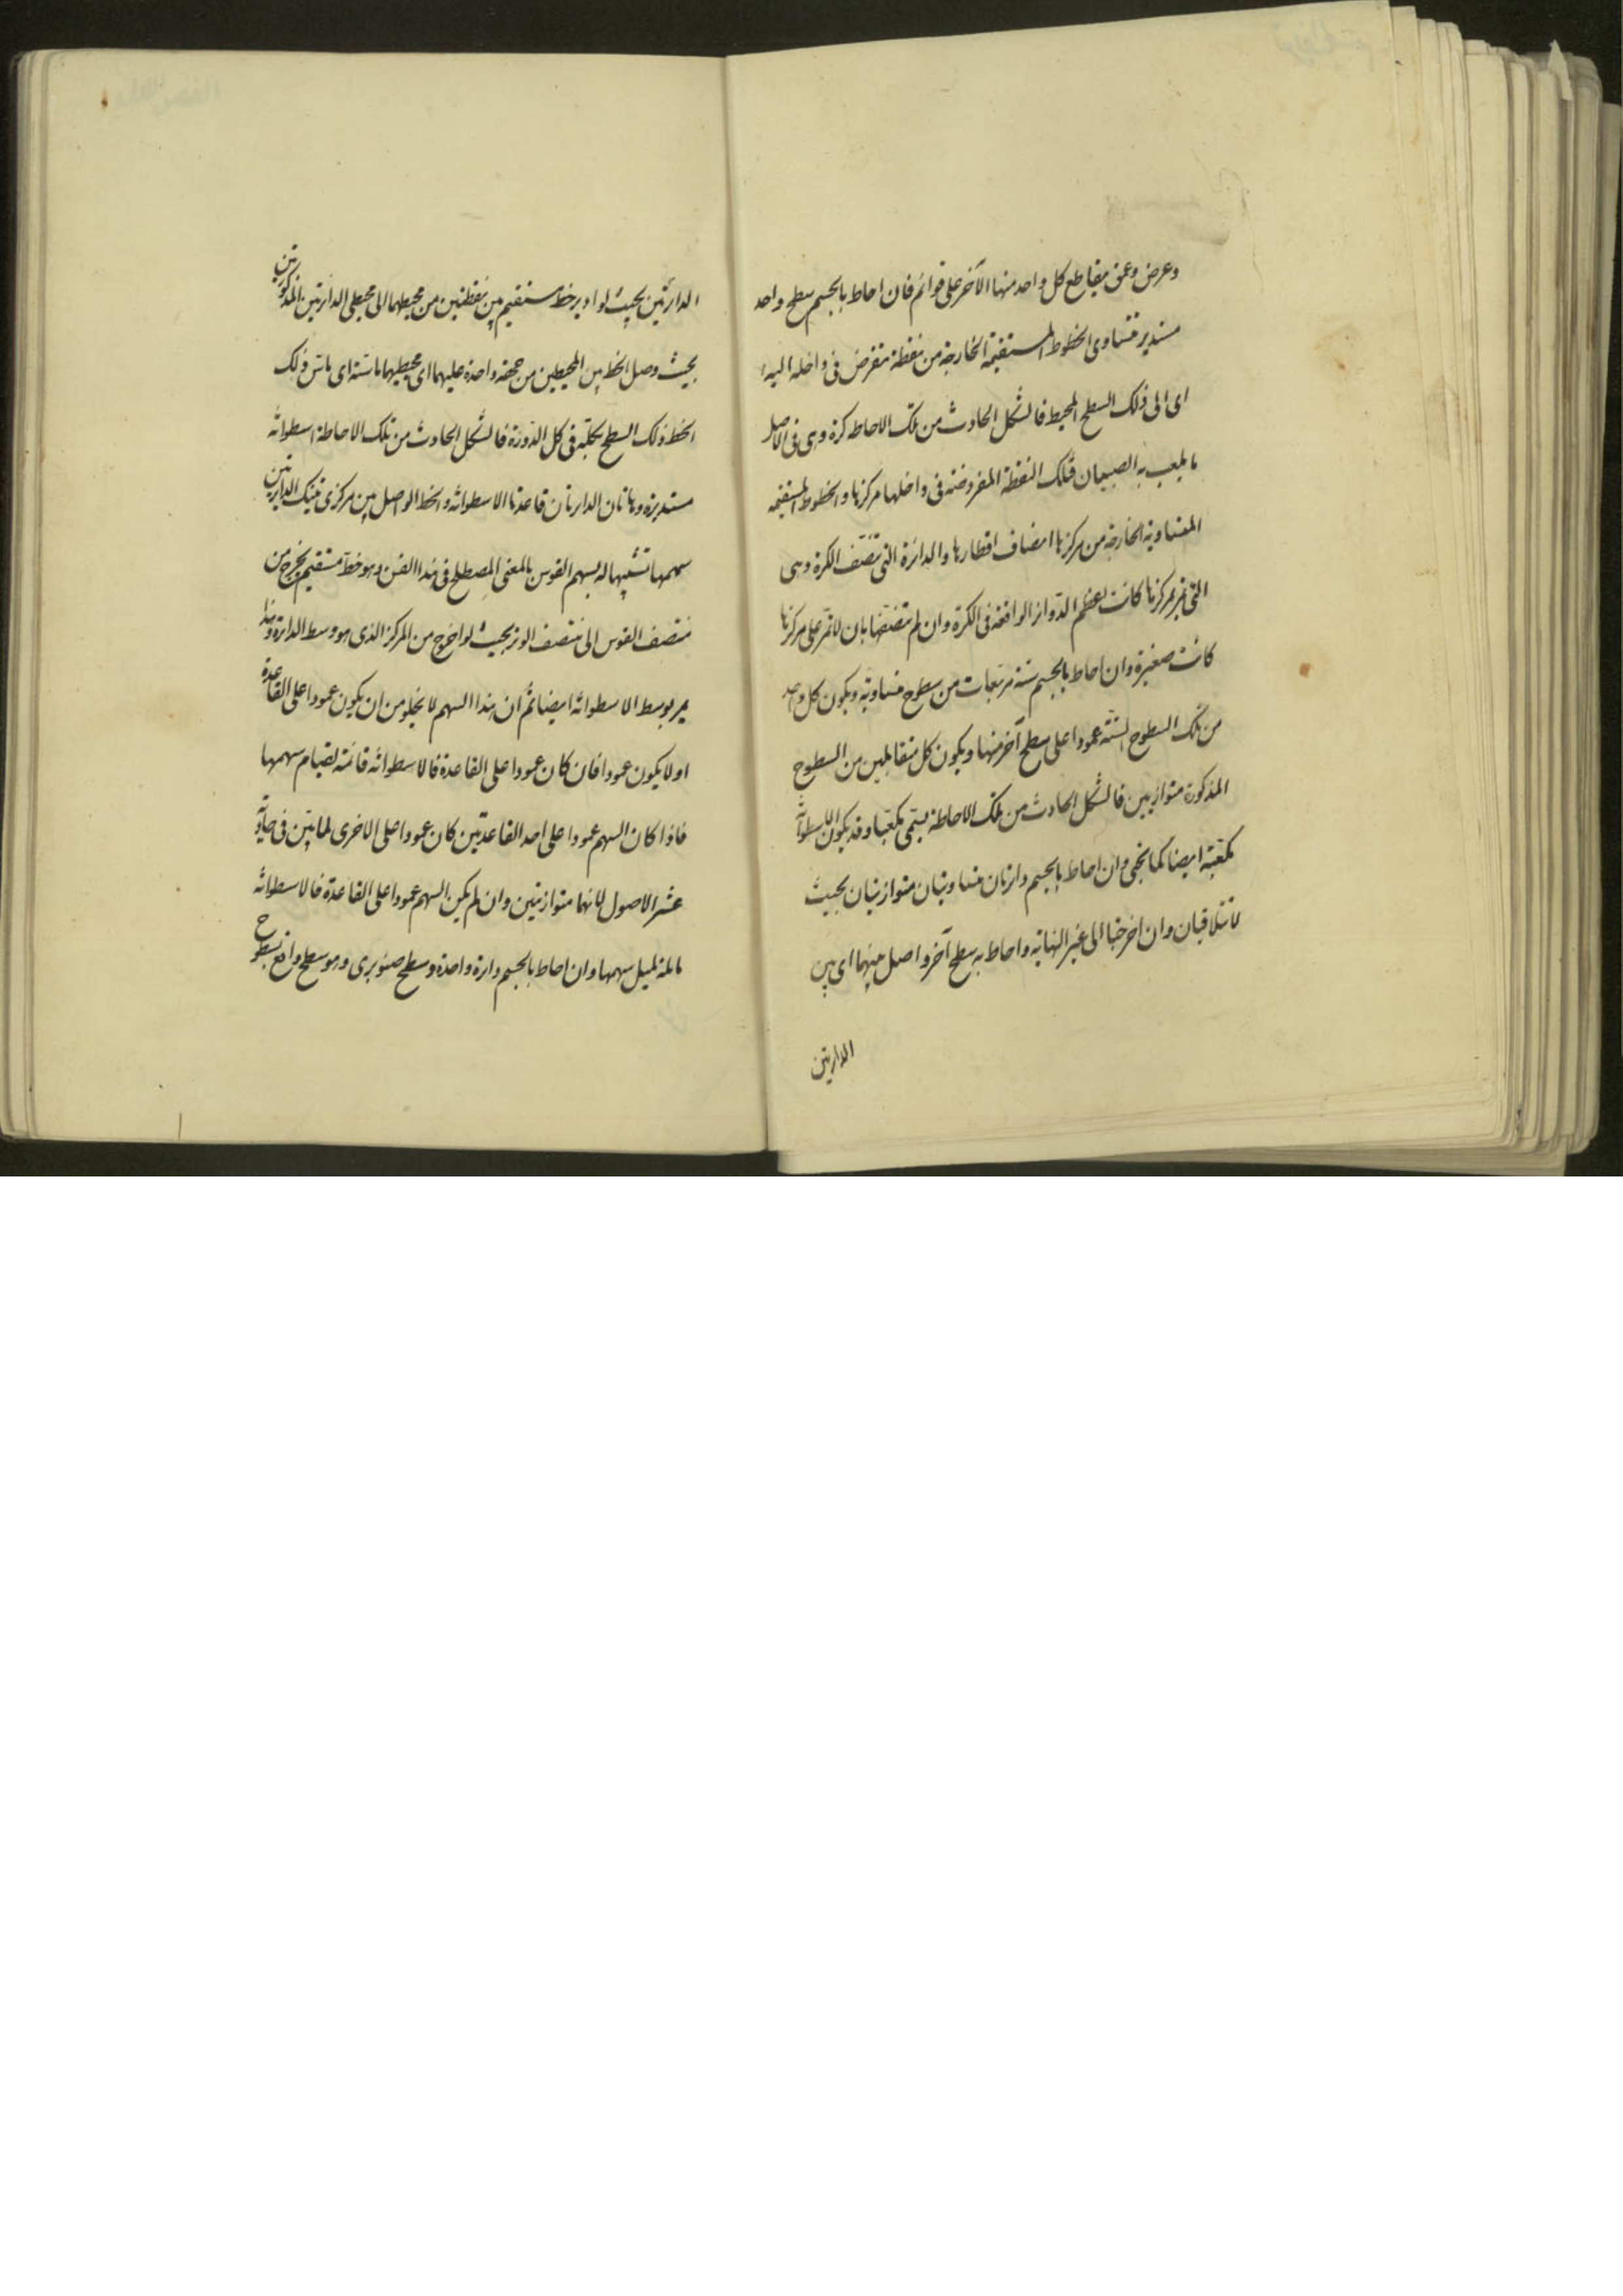 وعرض وعمق يقاطع كل واحد منها الآخر على قوائم فان احاط بالجسم سطح واحد
مستدير متساوى الخطوط المستقيمة الخارجة من نقطة تفرض فى داخله اليه
اى الى ذلك السطح المحيط فالشكل الحادث من تلك الاحاطه كرة وهى فى الاصل
ما يلعب به الصبيان فتلك النقطة المفروضة فى داخلها مركزها والخطوط المستقيمه
المتساوية الخارجة من مركزها انصاف اقطارها والدائرة التى تنصف الكرة وهى
التى تمر بمركزها كانت اعظم الدوائر الواقعة فى الكرة وان لم تنصفها بان لا تمر على مركزها
كانت صغيرة وان احاط بالجسم ستة مربعات من سطوح متساوية ويكون كل واحد
من تلك السطوح الستة عمودا على سطح آخر منها ويكون كل متقابلين من السطوح
المذكورة متوازيين فالشكل الحادث من تلك الاحاطة يسمى مكعبا وقد يكون الاسطوانة
مكعبة ايضا كما يجئ وان احاط بالجسم دائرتان متساويتان متوازيتان بحيث
لا تتلاقيان وان اخرجتا الى غير النهاية واحاط به سطح آخر واصل بينهما اى بين
الدائرتين
الدائرتين بحيث لو ادير خط مستقيم بين نقطتين من محيطهما الى محيطى الدائرتين المذكورتين
بحيث وصل الخط بين المحيطين من جهة واحدة عليهما اى محيطيهما ماسته اى ماس ذلك
الخط ذلك السطح بكليته فى كل الدورة فالشكل الحادث من تلك الاحاطة اسطوانة
مستديرة وهاتان الدائرتان قاعدتا الاسطوانة والخط الواصل بين مركزى تينك الدائرتين
سهمها تشبيها له بسهم القوس بالمعنى المصطلح فى هذا الفن وهو خط مستقيم يخرج من
منتصف القوس الى منتصف الوتر بحيث لو اخرج من المركز الذى هو وسط الدائرة وهذا
يمر بوسط الاسطوانة ايضا ثم ان هذا السهم لا يخلو من ان يكون عمودا على القاعدة
او لا يكون عمودا فان كان عمودا على القاعدة فالاسطوانة قائمة لقيام سهمها
فاذا كان السهم عمودا على احد القاعدتين كان عمودا على الاخرى لما تبين فى حادية
عشر الاصول لانهما متوازيتين وان لم يكن السهم عمودا على القاعدة فالاسطوانة
مائلة لميل سهمها وان احاط بالجسم دائرة واحدة وسطح صنوبرى وهو سطح واقع